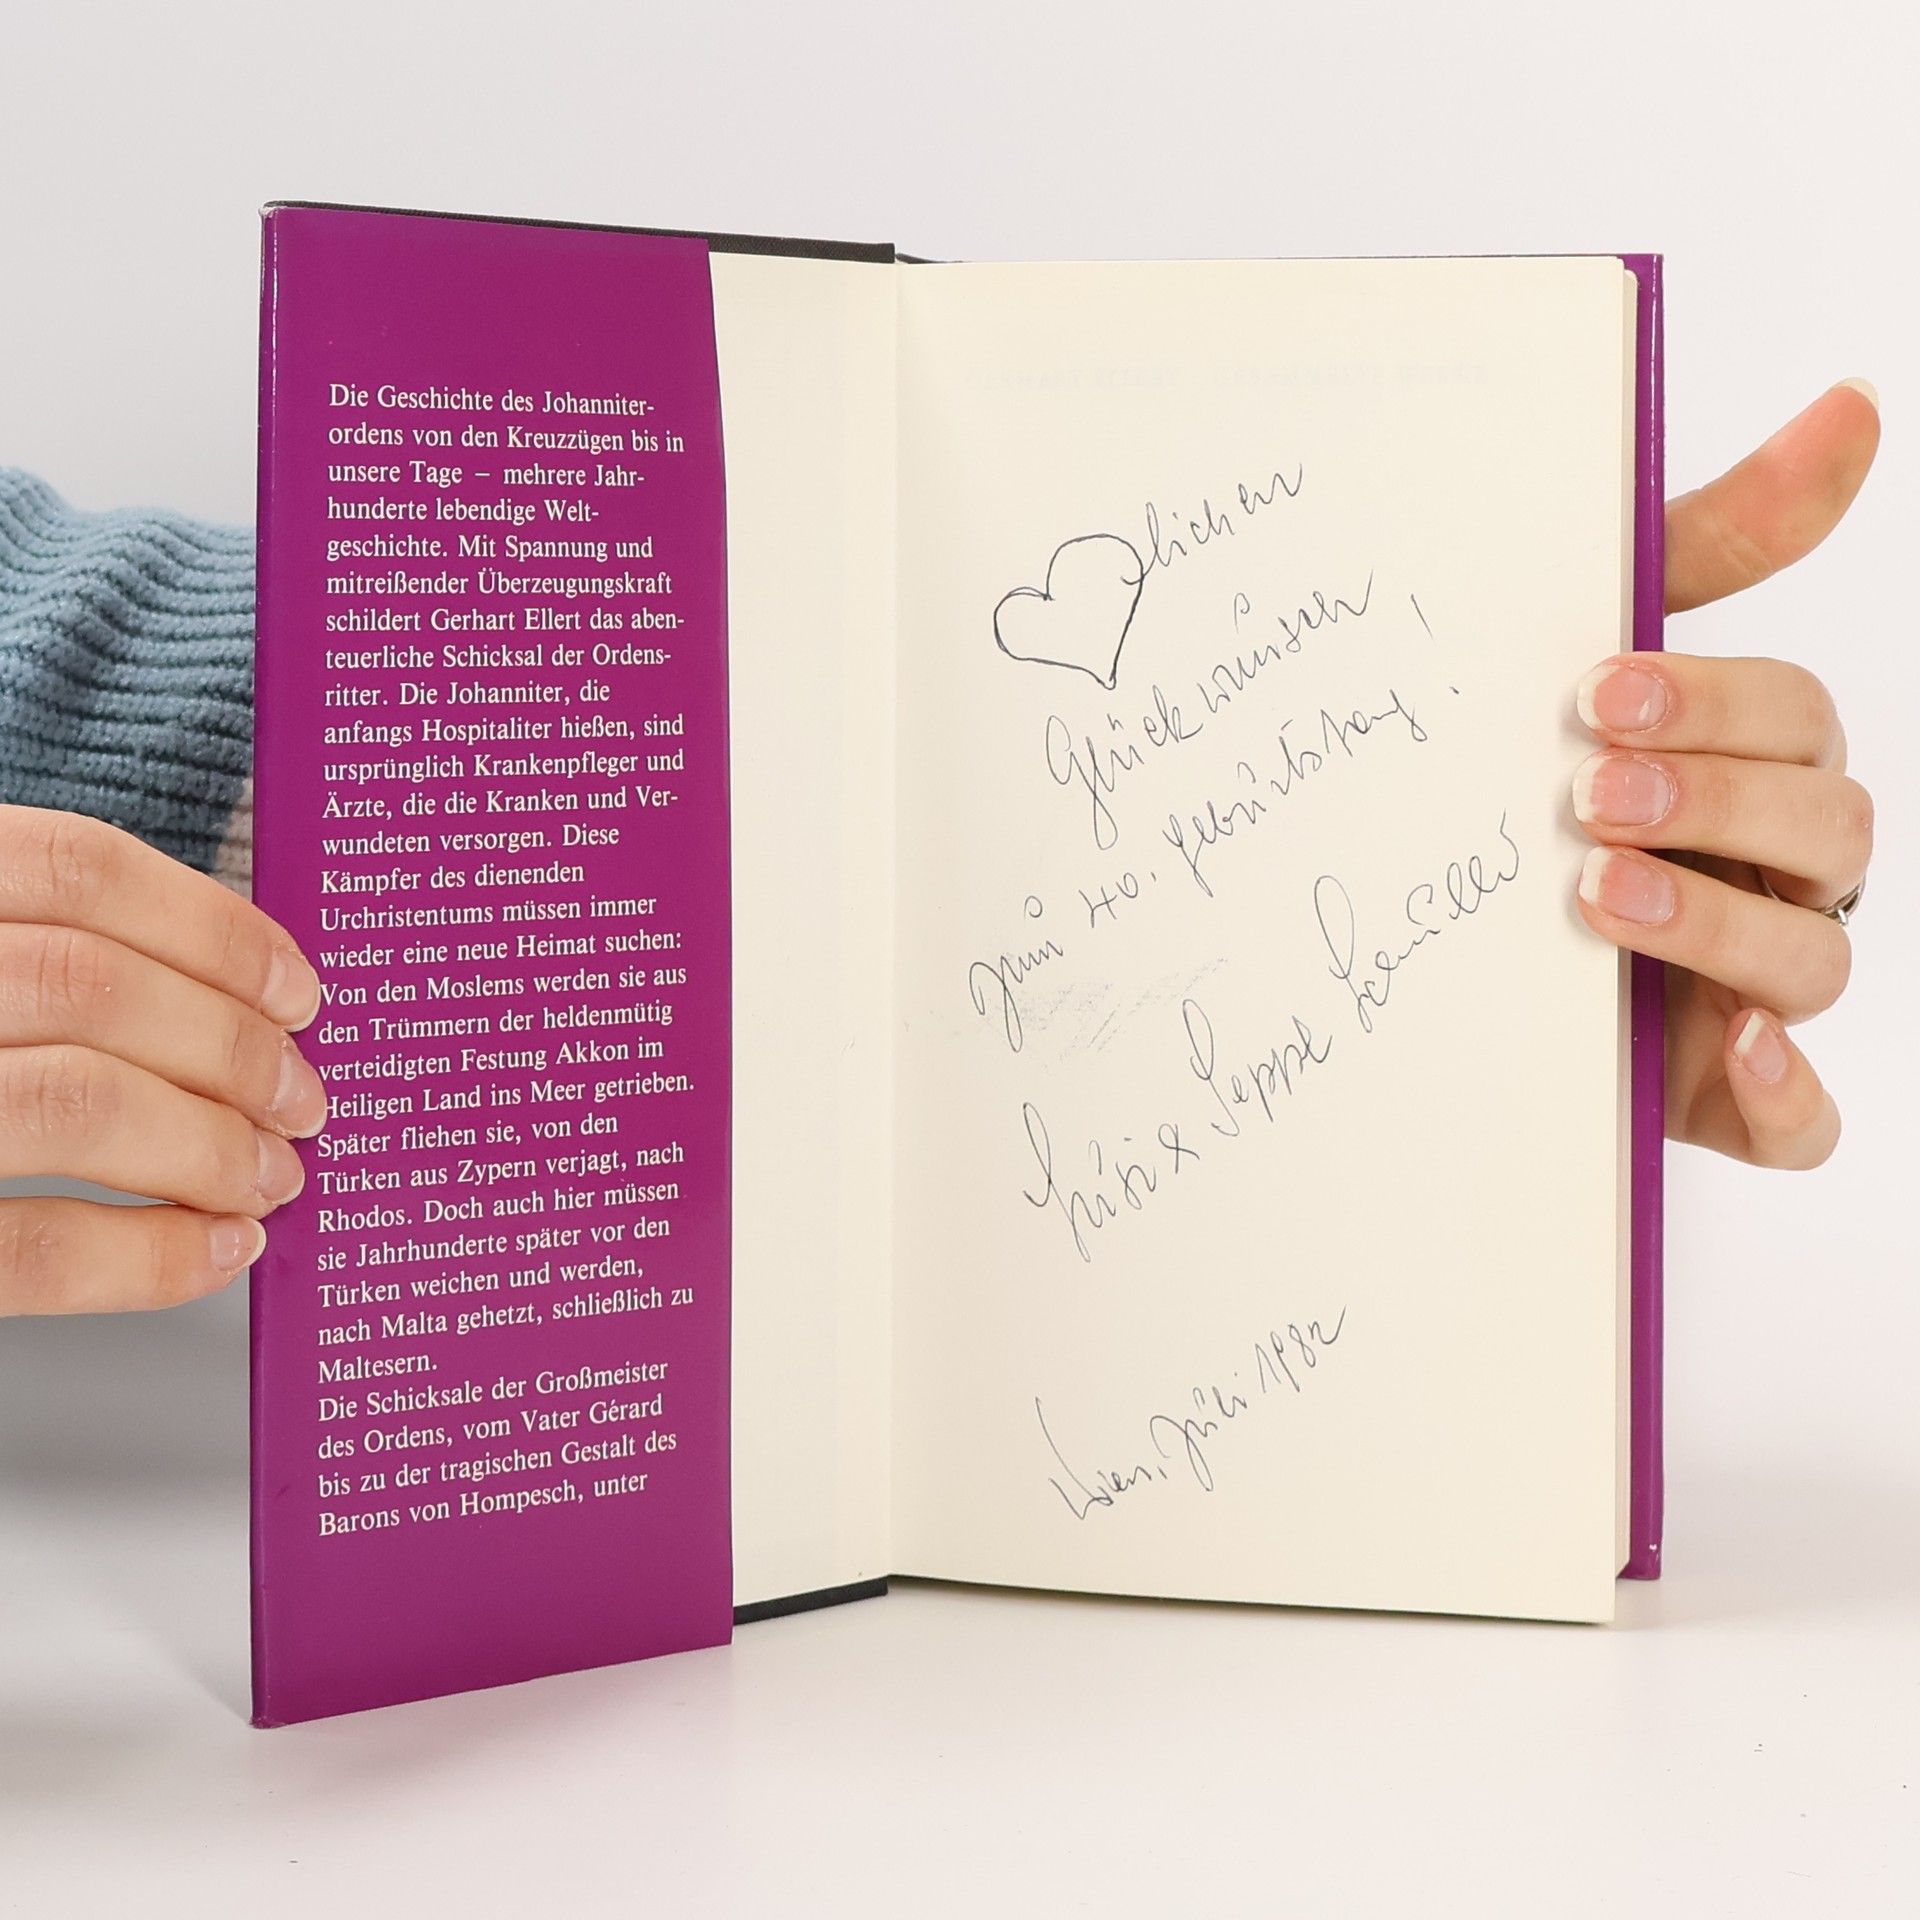 Die Geschichte des Johanniter-
ordens von den Kreuzzügen bis in
unsere Tage – mehrere Jahr-
hunderte lebendige Welt-
geschichte. Mit Spannung und
mitreißender Überzeugungskraft
schildert Gerhart Ellert das aben-
teuerliche Schicksal der Ordens-
ritter. Die Johanniter, die
anfangs Hospitaliter hießen, sind
ursprünglich Krankenpfleger und
Ärzte, die die Kranken und Ver-
wundeten versorgen. Diese
Kämpfer des dienenden
Urchristentums müssen immer
wieder eine neue Heimat suchen:
Von den Moslems werden sie aus
den Trümmern der heldenmütig
verteidigten Festung Akkon im
Heiligen Land ins Meer getrieben.
Später fliehen sie, von den
Türken aus Zypern verjagt, nach
Rhodos. Doch auch hier müssen
sie Jahrhunderte später vor den
Türken weichen und werden,
nach Malta gehetzt, schließlich zu
Maltesern.
Die Schicksale der Großmeister
des Ordens, vom Vater Gérard
bis zu der tragischen Gestalt des
Barons von Hompesch, unter
lichen
Glückwunsch
zum 40. Geburtstag!
& Seppl
Wien, Juli 1982